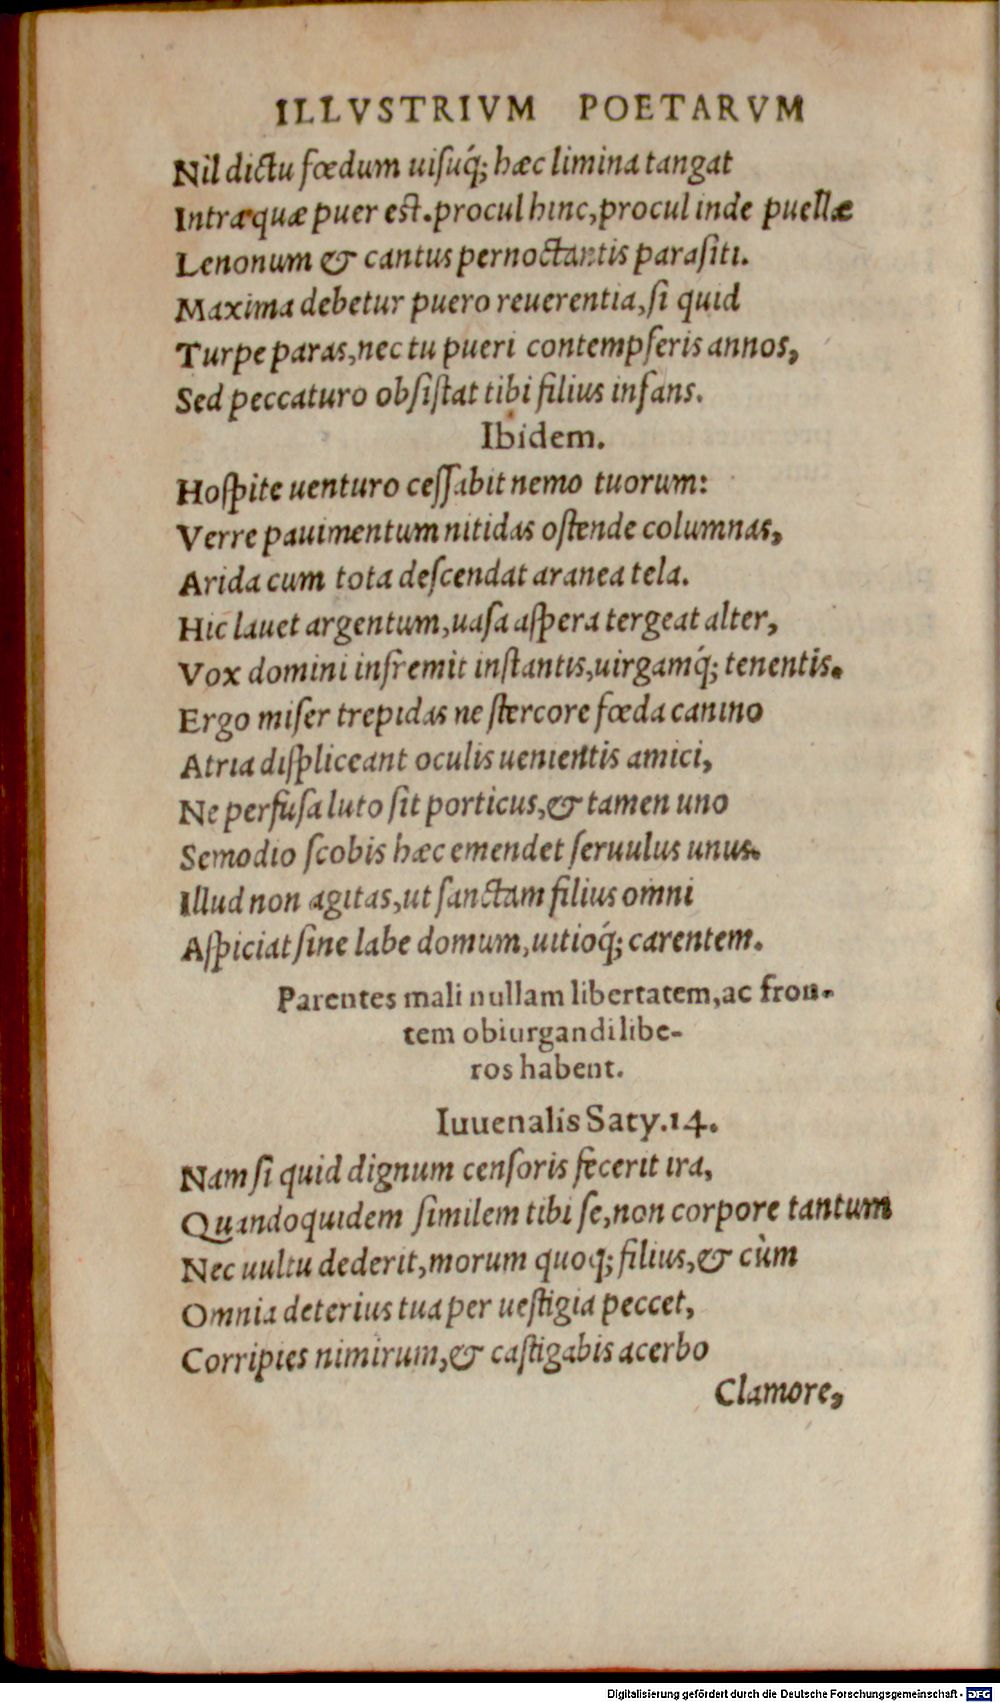 ILLVSTRIVM POETARVM
Nil dictu fœdum uiſuq́; hæc limina tangat
Intra quæ puer est. procul hinc, procul inde puellæ
Lenonum & cantus pernoctantis paraſiti.
Maxima debetur puero reuerentia, ſi quid
Turpe paras, nec tu pueri contempſeris annos,
Sed peccaturo obſiſtat tibi filius inſans.
Ibidem.
Hoſpite uenturo ceſſabit nemo tuorum:
Verre pauimentum nitidas oſtende columnas,
Arida cum tota deſcendat aranea tela.
Hic lauet argentum, uaſa aſpera tergeat alter,
Vox domini infremit inſtantis, uirgamq́; tenentis.
Ergo miſer trepidas ne ſtercore fœda canino
Atria diſpliceant oculis uenientis amici,
Ne perfuſa luto ſit porticus, & tamen uno
Semodio ſcobis hæc emendet ſeruulus unus.
Illud non agitas, ut ſanctam filius omni
Aſpiciat ſine labe domum, uitioq́; carentem.
Parentes mali nullam libertatem, ac fron-
tem obiurgandi libe-
ros habent.
Iuuenalis Saty. 14.
Nam ſi quid dignum cenſoris fecerit ira,
Quandoquidem ſimilem tibi ſe, non corpore tantum
Nec uultu dederit, morum quoq; filius, & cùm
Omnia deterius tua per ueſtigia peccet,
Corripies nimirum, & caſtigabis acerbo
Clamore,
Digitalisierung gefördert durch die Deutsche Forschungsgemeinschaft - DFG